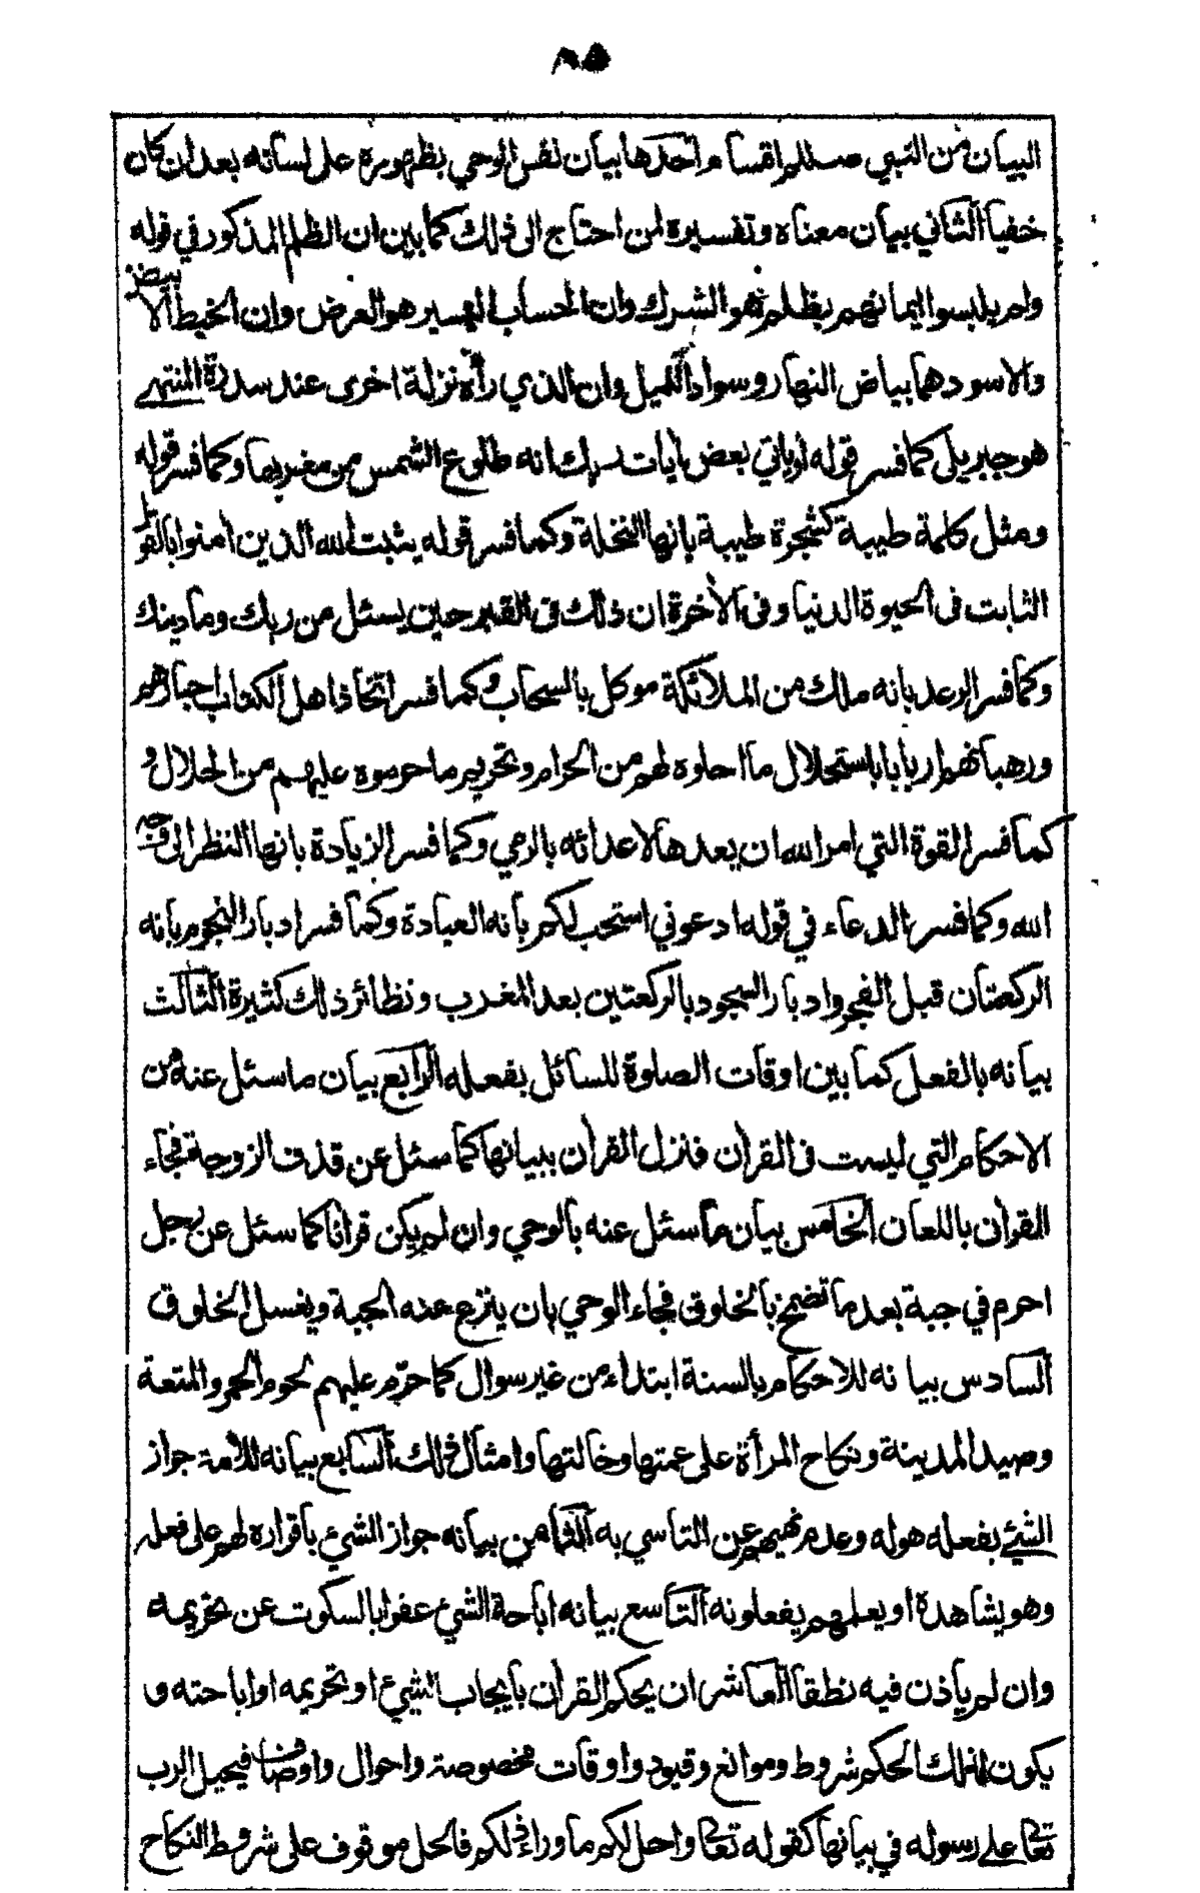 ٨٥
البيان من النبي صللم اقسام احدها بيان نفس الوحي بظهوره على لسانه بعد ان كان
خفيا الثاني بيان معناه وتفسيره لمن احتاج الى ذلك كما بين ان الظلم المذكور في قوله
ولم يلبسوا ايمانهم بظلم هو الشرك وان الحساب اليسير هو العرض وان الخيط الابيض
والاسود هما بياض النهار وسواد الليل وان الذي رأه نزلة اخرى عند سدرة المنتهى
هو جبريل كما فسر قوله او ياتي بعض أيات ربك انه طلوع الشمس من مغربها وكما فسر قوله
ومثل كلمة طيبة كشجرة طيبة بانها النخلة وكما فسر قوله يثبت الله الذين امنوا بالقول
الثابت فى الحيوة الدنيا وفى الأخرة ان ذلك فى القبر حين يسئل من ربك وما دينك
وكما فسر الرعد بانه ملك من الملائكة موكل بالسحاب وكما فسر اتخاذ اهل الكتاب احبارهم
ورهبانهم اربابا باستحلال ما احلوه لهم من الحرام وتحريم ما حرموه عليهم من الحلال و
كما فسر القوة التي امر الله ان يعدها لاعدائه بالرمي وكما فسر الزيادة بانها النظر الى وجه
الله وكما فسر الدعاء في قوله ادعوني استجب لكم بانه العبادة وكما فسر ادبار النجوم بانه
الركعتان قبل الفجر وادبار السجود بالركعتين بعد المغرب ونظائر ذلك كثيرة الثالث
بيانه بالفعل كما بين اوقات الصلوة للسائل بفعله الرابع بيان ما سئل عنه من
الاحكام التي ليست فى القرأن فنزل القرأن ببيانها كما سئل عن قذف الزوجة فجاء
القرأن باللعان الخامس بيان ما سئل عنه بالوحي وان لم يكن قرأنا كما سئل عن رجل
احرم في جبة بعد ما تضمخ بالخلوق فجاء الوحي بان ينزع عنه الجبة ويغسل الخلوق
السادس بيانه للاحكام بالسنة ابتداء من غير سوال كما حرّم عليهم لحوم الحمر والمتعة
وصيد المدينة ونكاح المرأة على عمتها وخالتها وامثال ذلك السابع بيانه للأمة جواز
الشئ بفعله هو له وعدم نهيهم عن التاسي به الثامن بيانه جواز الشئ باقراره لهم على فعله
وهو يشاهده او يعلمهم يفعلونه التاسع بيانه اباحة الشئ عفوا بالسكوت عن تحريمه
وان لم ياذن فيه نطقا العاشر ان يحكم القرأن بايجاب الشئ او تحريمه او اباحته و
يكون لذلك الحكم شروط وموانع وقيود واوقات مخصوصة واحوال واوصاف فيحيل الرب
تعالى على رسوله في بيانها كقوله تعالى واحل لكم ما وراء ذلكم فالحل موقوف على شروط النكاح